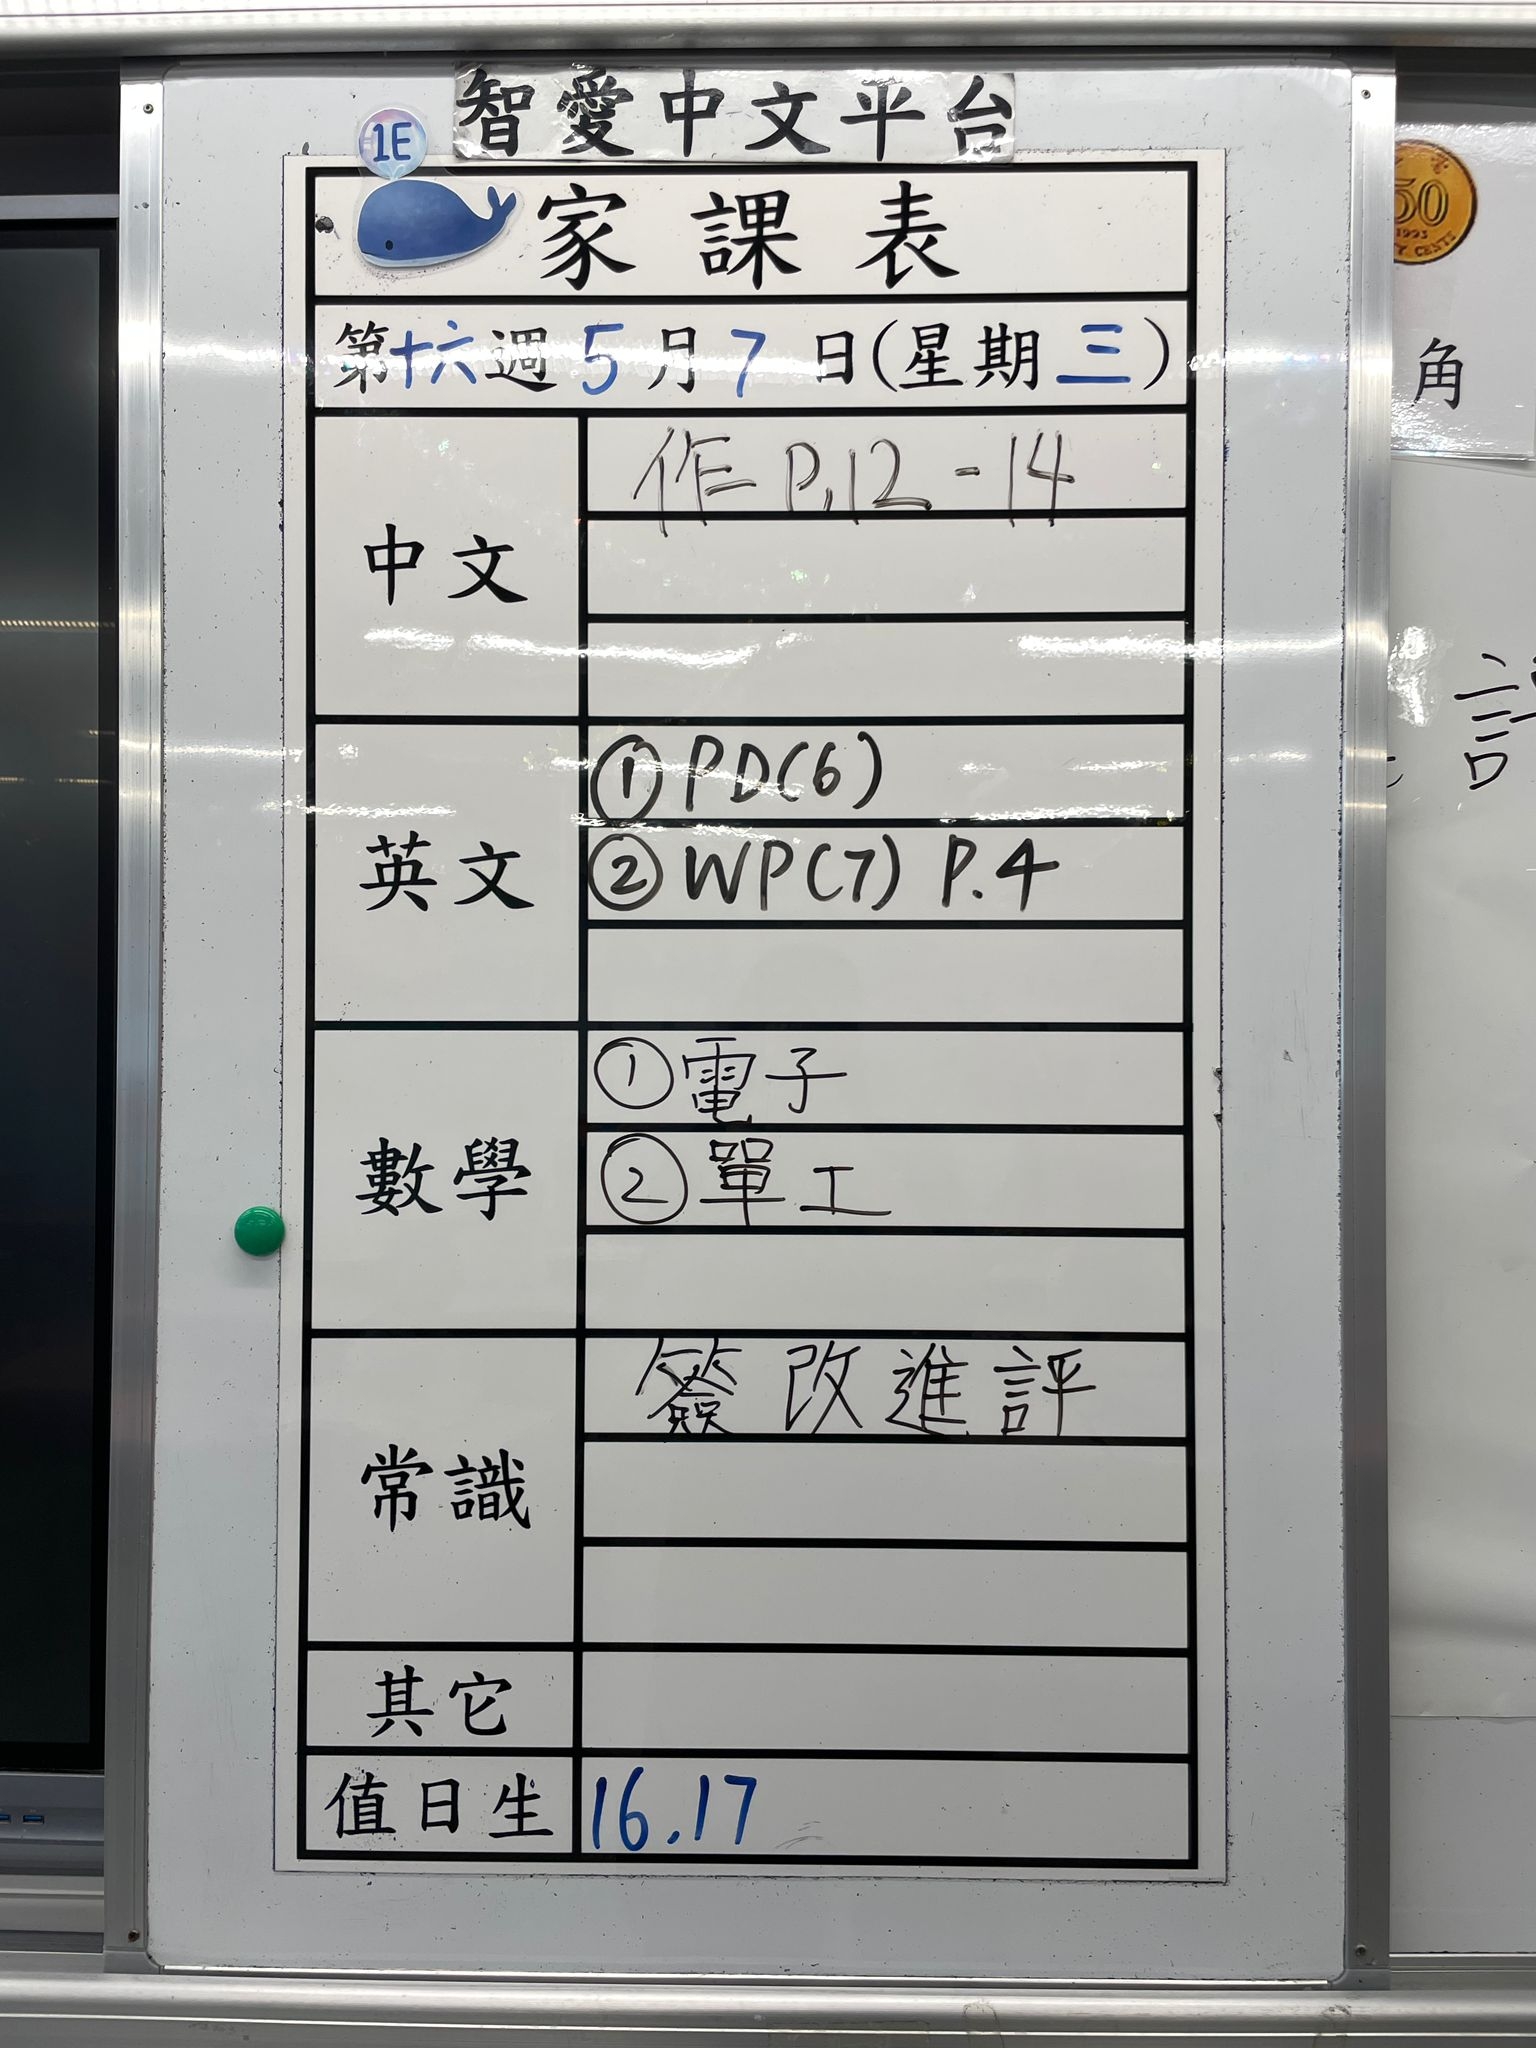 智愛中文平台
1E
家課表
第十六週5月7日(星期三)
中文
作 P.12-14
英文
①PD(6)
②WP(7) P.4
數學
①電子
②單工
常識
簽改進評
其它
值日生
16.17
50
1993
角